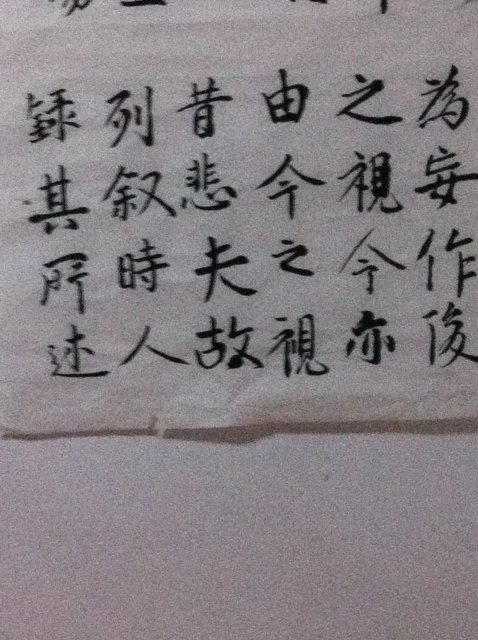 為妄作後
之視今亦
由今之視
昔悲夫故
列叙時人
録其所述